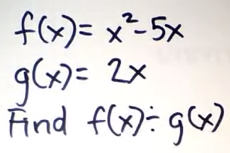 f(x)= x²-5x
g(x)= 2x
Find f(x)÷g(x)